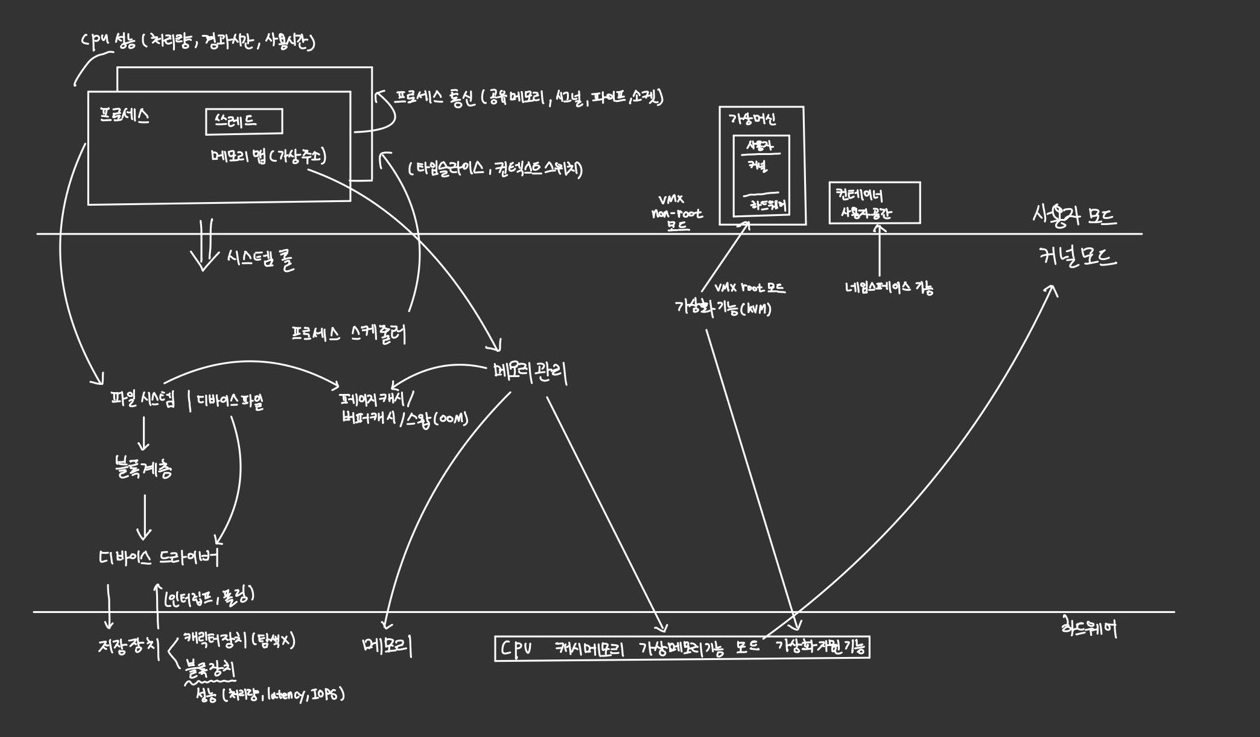 cpu 성능 (처리량, 경과시간, 사용시간)
프로세스
쓰레드
메모리 맵 (가상주소)
프로세스 통신 (공유메모리, 시그널, 파이프, 소켓)
(타임슬라이스, 컨텍스트 스위치)
가상머신
사용자
커널
하드웨어
VMX
non-root
모드
컨테이너
사용자공간
사용자 모드
시스템 콜
커널모드
VMX root 모드
가상화 기능(KVM)
네임스페이스 기능
프로세스 스케줄러
메모리관리
파일 시스템 | 디바이스 파일
페이지 캐시/
버퍼캐시/스왑(OOM)
블록계층
디바이스 드라이버
(인터럽트, 폴링)
하드웨어
저장장치
캐릭터장치 (탐색X)
블록장치
성능 (처리량, latency, IOPS)
메모리
CPU 캐시메모리 가상메모리기능 모드 가상화지원기능